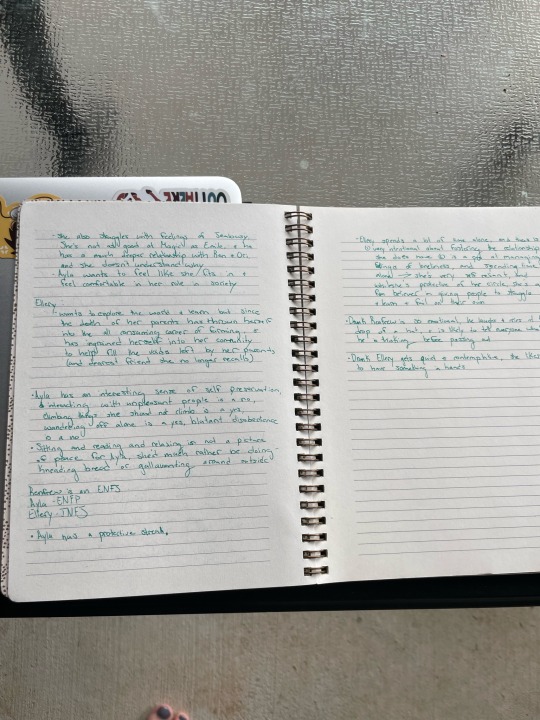 OUT THERE
- She also struggles with feelings of
She's not as good at Magic as Emile, & he
has a much deeper relationship with Ben & Ori,
and she doesn't understand why
Ayla wants to feel like she fits in &
feel comfortable in her role in society
Ellery:
wants to explore the world & learn but since
the death of her parents has thrown herself
into the all consuming work of &
has ingrained herself into her community
to help fill the voids left by her parents,
(and dearest friend she no longer recalls)
• Ayla has an interesting sense of self preservation,
interacting with unpleasant people is a no,
climbing things she should not climb is a yes,
wandering off alone is a yes, blatant disobedience
is a no
• Sitting and reading and relaxing is not a picture
of peace for Ayla, she'd much rather be doing
kneading bread or gallavanting around outside
Renfrew is an ENFJ
Ayla - ENFP
Ellery - INFJ
• Ayla has a protective streak.
- Ellery spends a lot of time alone, and
intentional about fostering the relationships
she does have & is a at managing
feelings of loneliness, and spending time
alone - she's very reticent but
protective of her circle, she's a
firm believer in giving people to struggle
& learn & fail on their own
• Drunk Renfrew is so emotional, he laughs
drop of a hat, & is likely to tell everyone
before passing out
• Drunk Ellery gets quiet & contemplative, she likes
to have something in hands